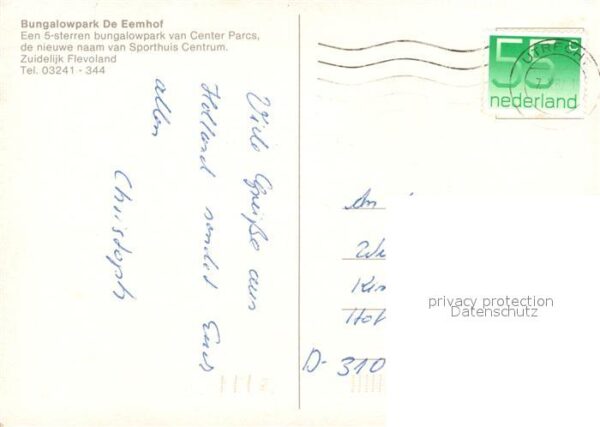 Bungalowpark De Eemhof
Een 5-sterren bungalowpark van Center Parcs,
de nieuwe naam van Sporthuis Centrum.
Zuidelijk Flevoland
Tel. 03241 - 344
Viele Grüße aus
Holland sendet Euch
allen
Christoph
55 c
nederland
UTRECH
An
We
Kin
Hof
D- 310
privacy protection
Datenschutz